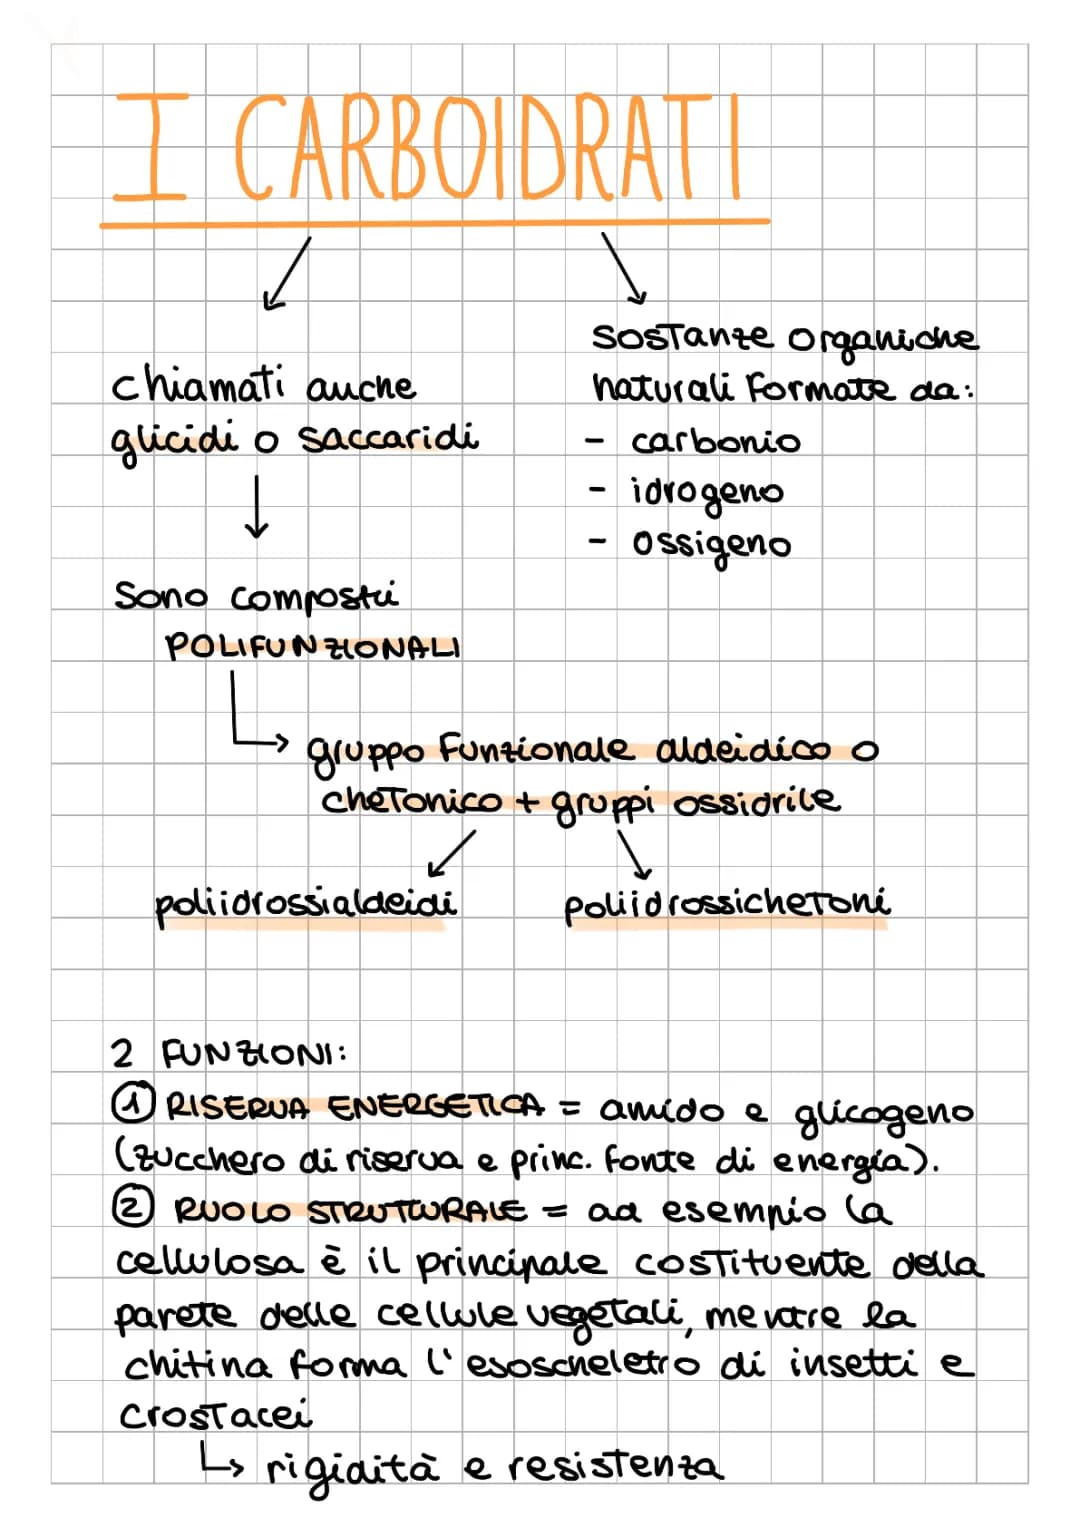 I CARBOIDRATI
chiamati anche
glicidi o saccaridi
sostanze organiche
naturali formate da:
- carbonio
- idrogeno
- ossigeno
Sono composti
POLIFUNZIONALI
gruppo funzionale aldeidico o
chetonico + gruppi ossidrile
poliidrossialdeidi
poliidrossichetoni
2 FUNZIONI:
① RISERVA ENERGETICA = amido e glicogeno
(zucchero di riserva e princ. fonte di energia).
② RUOLO STRUTTURALE = ad esempio la
cellulosa è il principale costituente della
parete delle cellule vegetali, mentre la
chitina forma l'esoscheletro di insetti e
crostacei
rigidità e resistenza